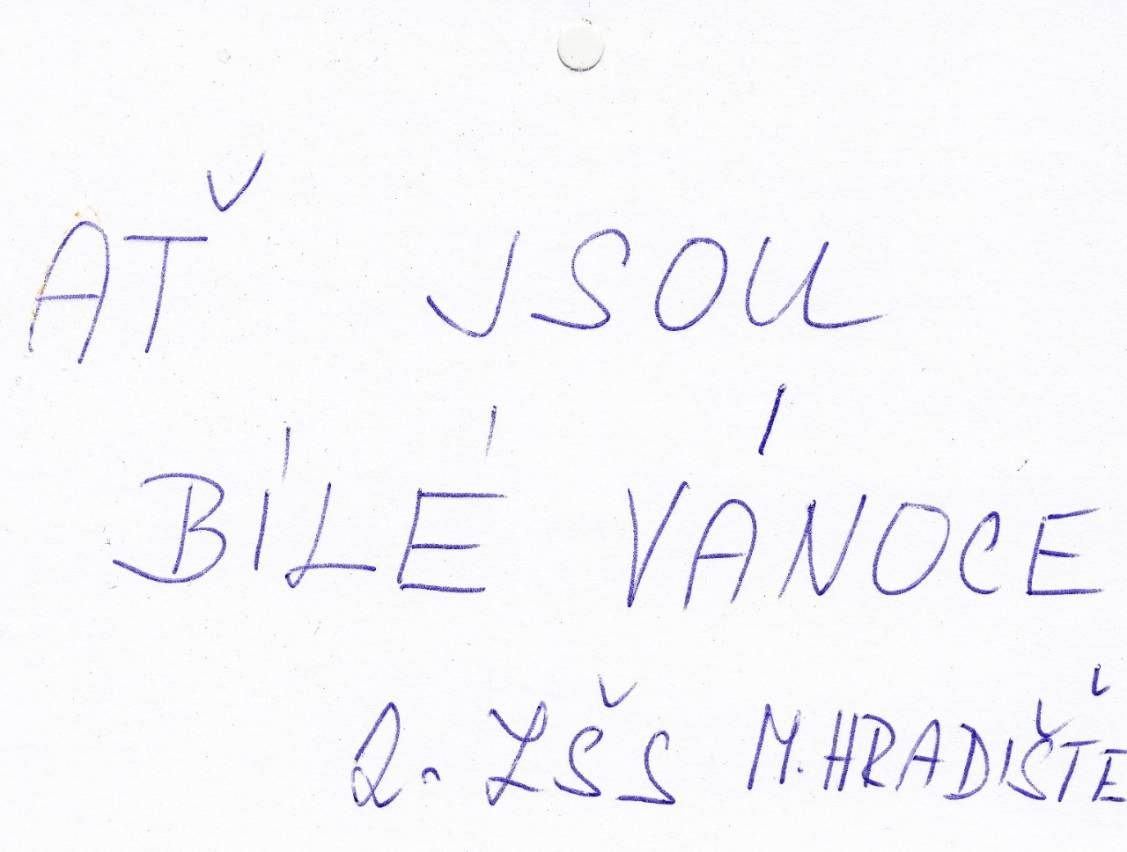 AŤ JSOU
BÍLÉ VÁNOCE
2. ZŠS M. HRADIŠTĚ